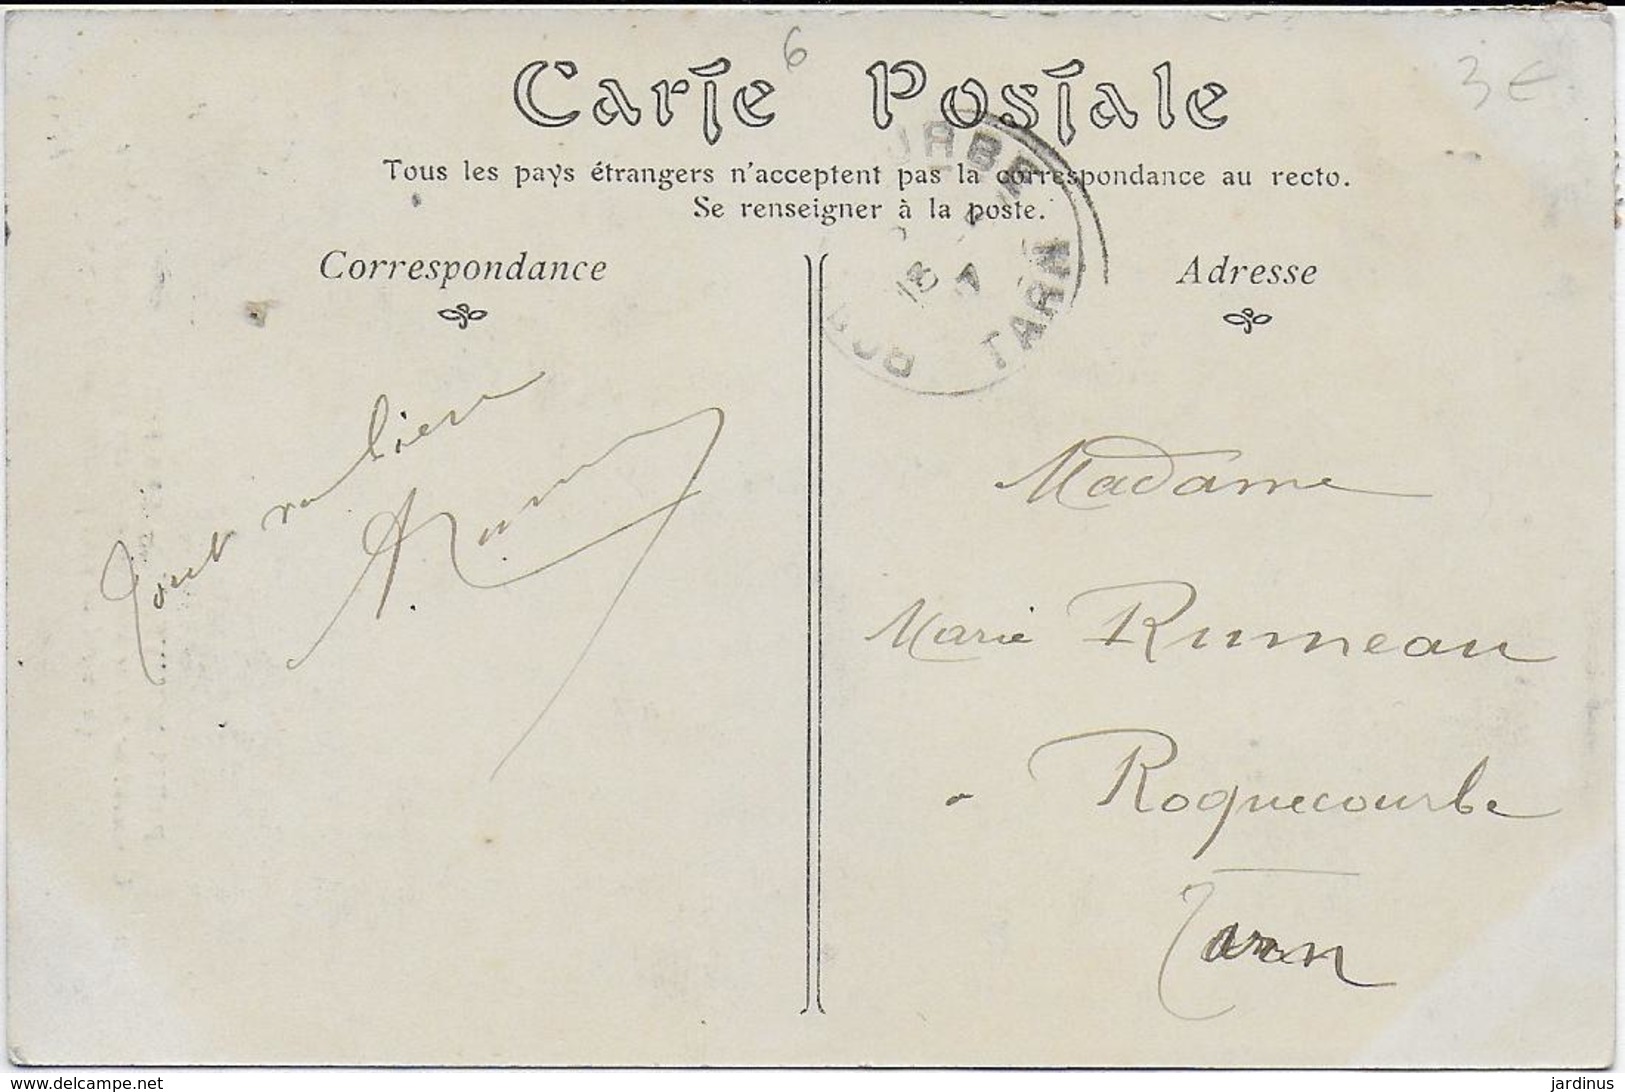 6
3 €
Carte Postale
Tous les pays étrangers n'acceptent pas la correspondance au recto.
Se renseigner à la poste.
TARN
18
7
Correspondance
Adresse
Tout va bien
Madame
Marie Rumeau
Roquecourbe
Tarn
www.delcampe.net
jardinus